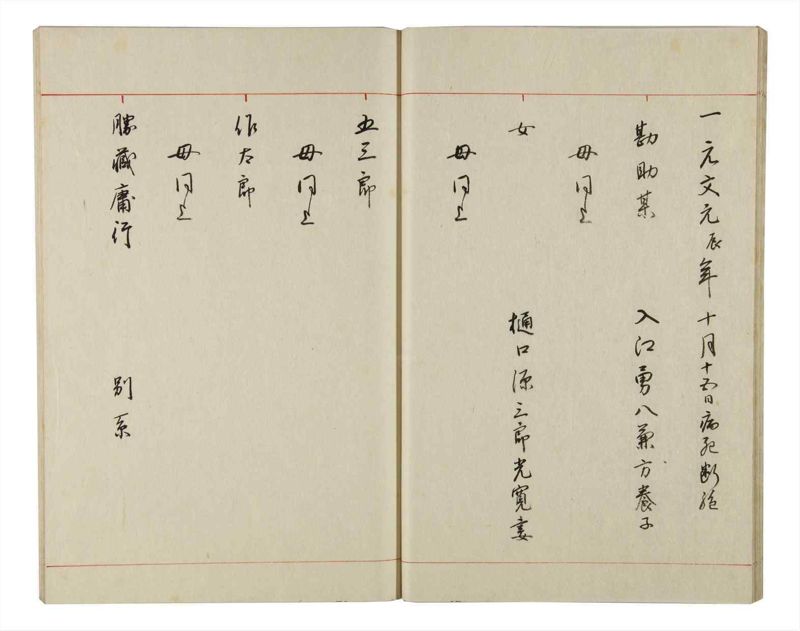 一元文元辰年十月十五日病死断絶
勘助某 入江勇八兼方養子
母同上
女 樋口源三郎光寛妻
母同上
五三郎
母同上
作太郎
母同上
勝蔵庸行 別系